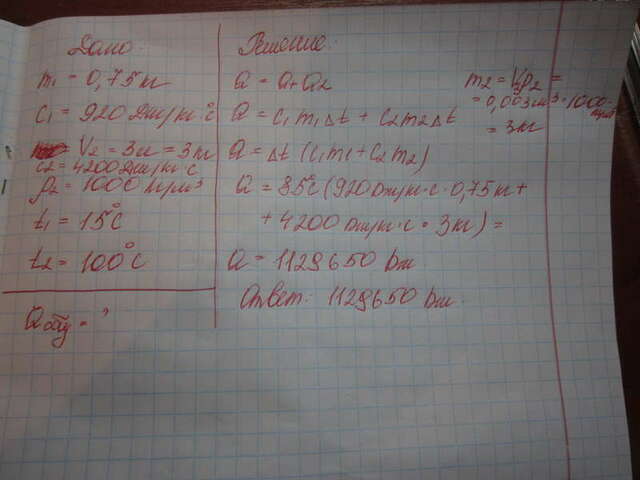 Дано:
m1 = 0,75 кг
c1 = 920 Дж/кг·°С
V2 = 3л = 3кг
c2 = 4200 Дж/кг·С
ρ2 = 1000 кг/м³
t1 = 15°С
t2 = 100°С
Qобщ = ?
Решение:
Q = Q1+Q2
Q = c1 m1 Δt + c2 m2 Δt
Q = Δt (c1 m1 + c2 m2)
Q = 85°С (920 Дж/кг·С · 0,75 кг +
+ 4200 Дж/кг·С · 3кг) =
Q = 1129650 Дж
Ответ: 1129650 Дж.
m2 = V2ρ2 =
= 0,003 м³ · 1000 кг/м³
= 3кг